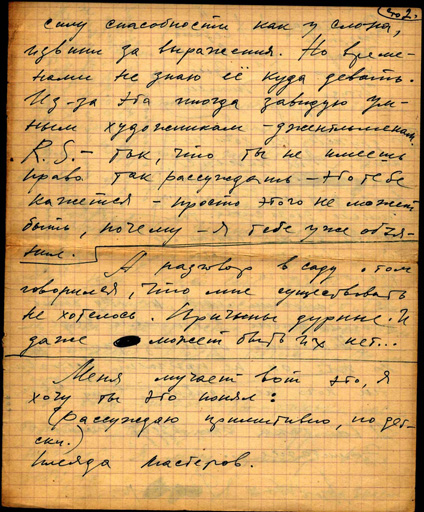 стр 2.
силу способности как у слона,
извини за выражения. Но време-
нами не знаю её куда девать.
Из-за это иногда завидую ум-
ным художникам - джентльменам.
R. S. - так, что ты не имеешь
право так рассуждать - это тебе
кажется - просто этого не может
быть, почему - я тебе уже объя-
нил.
А разговор в саду о том
говорился, что мне существовать
не хотелось. Причины дурные. И
даже может быть их нет...
Меня мучает вот это, я
хочу ты это понял:
(рассуждаю примитивно, по дет-
ски.)
Плеяда мастеров.